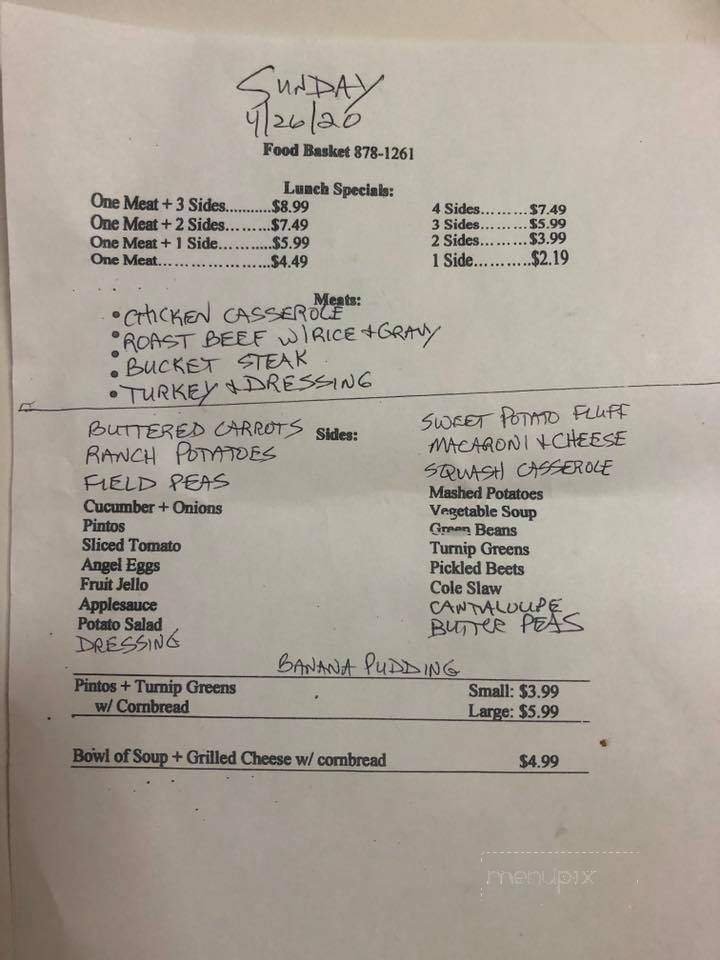 SUNDAY
4/26/20
Food Basket 878-1261
Lunch Specials:
One Meat + 3 Sides...........$8.99
One Meat + 2 Sides.........$7.49
One Meat + 1 Side............$5.99
One Meat........................$4.49
4 Sides.........$7.49
3 Sides.........$5.99
2 Sides.........$3.99
1 Side...........$2.19
Meats:
• CHICKEN CASSEROLE
• ROAST BEEF W/RICE + GRAVY
• BUCKET STEAK
• TURKEY & DRESSING
Sides:
BUTTERED CARROTS
RANCH POTATOES
FIELD PEAS
Cucumber + Onions
Pintos
Sliced Tomato
Angel Eggs
Fruit Jello
Applesauce
Potato Salad
DRESSING
SWEET POTATO FLUFF
MACARONI & CHEESE
SQUASH CASSEROLE
Mashed Potatoes
Vegetable Soup
Green Beans
Turnip Greens
Pickled Beets
Cole Slaw
CANTALOUPE
BUTTER PEAS
BANANA PUDDING
Pintos + Turnip Greens
w/ Cornbread
Small: $3.99
Large: $5.99
Bowl of Soup + Grilled Cheese w/ cornbread $4.99
menupix